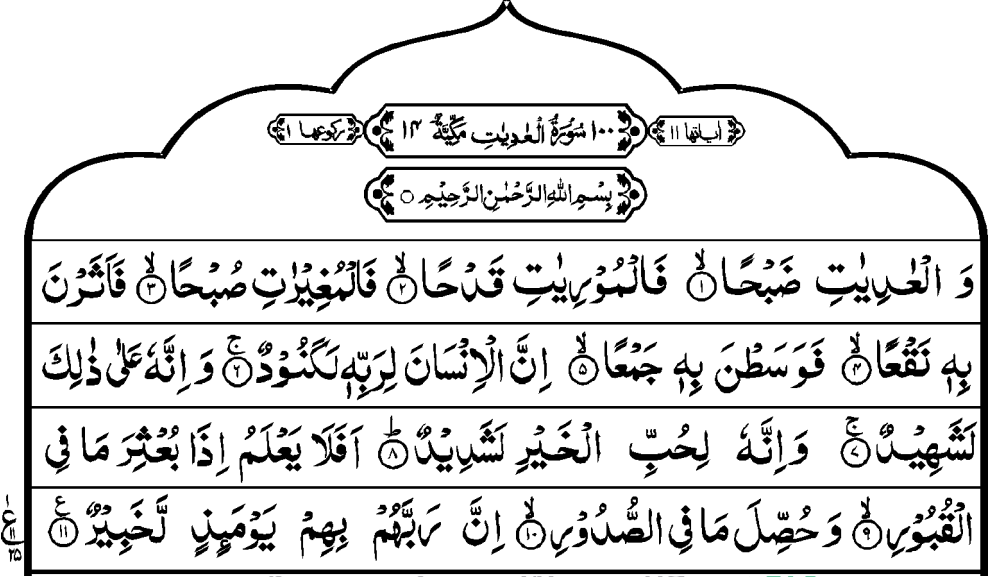 اٰیاتها ١١ ١٠٠ سُوْرَةُ الْعٰدِیٰتِ مَكِّیَّةٌ ١٤ ركوعها ١
بِسْمِ اللّٰهِ الرَّحْمٰنِ الرَّحِیْمِ ○
وَ الْعٰدِیٰتِ ضَبْحًا ۙ﴿١﴾ فَالْمُوْرِیٰتِ قَدْحًا ۙ﴿٢﴾ فَالْمُغِیْرٰتِ صُبْحًا ۙ﴿٣﴾ فَاَثَرْنَ
بِهٖ نَقْعًا ۙ﴿٤﴾ فَوَسَطْنَ بِهٖ جَمْعًا ۙ﴿٥﴾ اِنَّ الْاِنْسَانَ لِرَبِّهٖ لَكَنُوْدٌ ۚ﴿٦﴾ وَ اِنَّهٗ عَلٰی ذٰلِكَ
لَشَهِیْدٌ ۚ﴿٧﴾ وَ اِنَّهٗ لِحُبِّ الْخَیْرِ لَشَدِیْدٌ ؕ﴿٨﴾ اَفَلَا یَعْلَمُ اِذَا بُعْثِرَ مَا فِی
الْقُبُوْرِ ۙ﴿٩﴾ وَ حُصِّلَ مَا فِی الصُّدُوْرِ ۙ﴿١٠﴾ اِنَّ رَبَّهُمْ بِهِمْ یَوْمَىِٕذٍ لَّخَبِیْرٌ ﴿١١﴾ ع